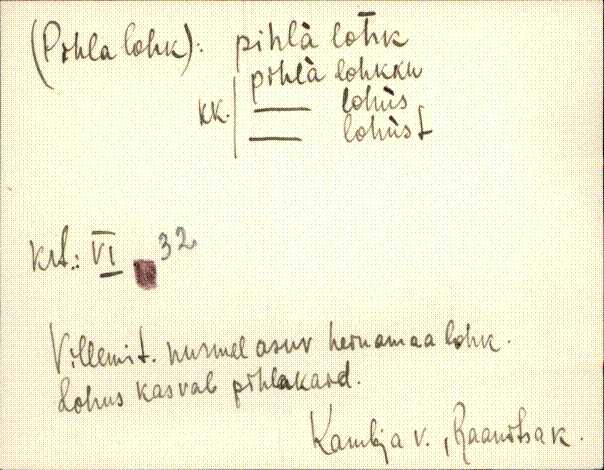 (Pihla lohk): pihlà lohk
pihlà lohkku
kk. — lohùs
— lohùst
krt.: VI 32
Villemit. nurmel asuv heinamaa lohk.
Lohus kasvab pihlakaid.
Kambja v., Raanitsa k.